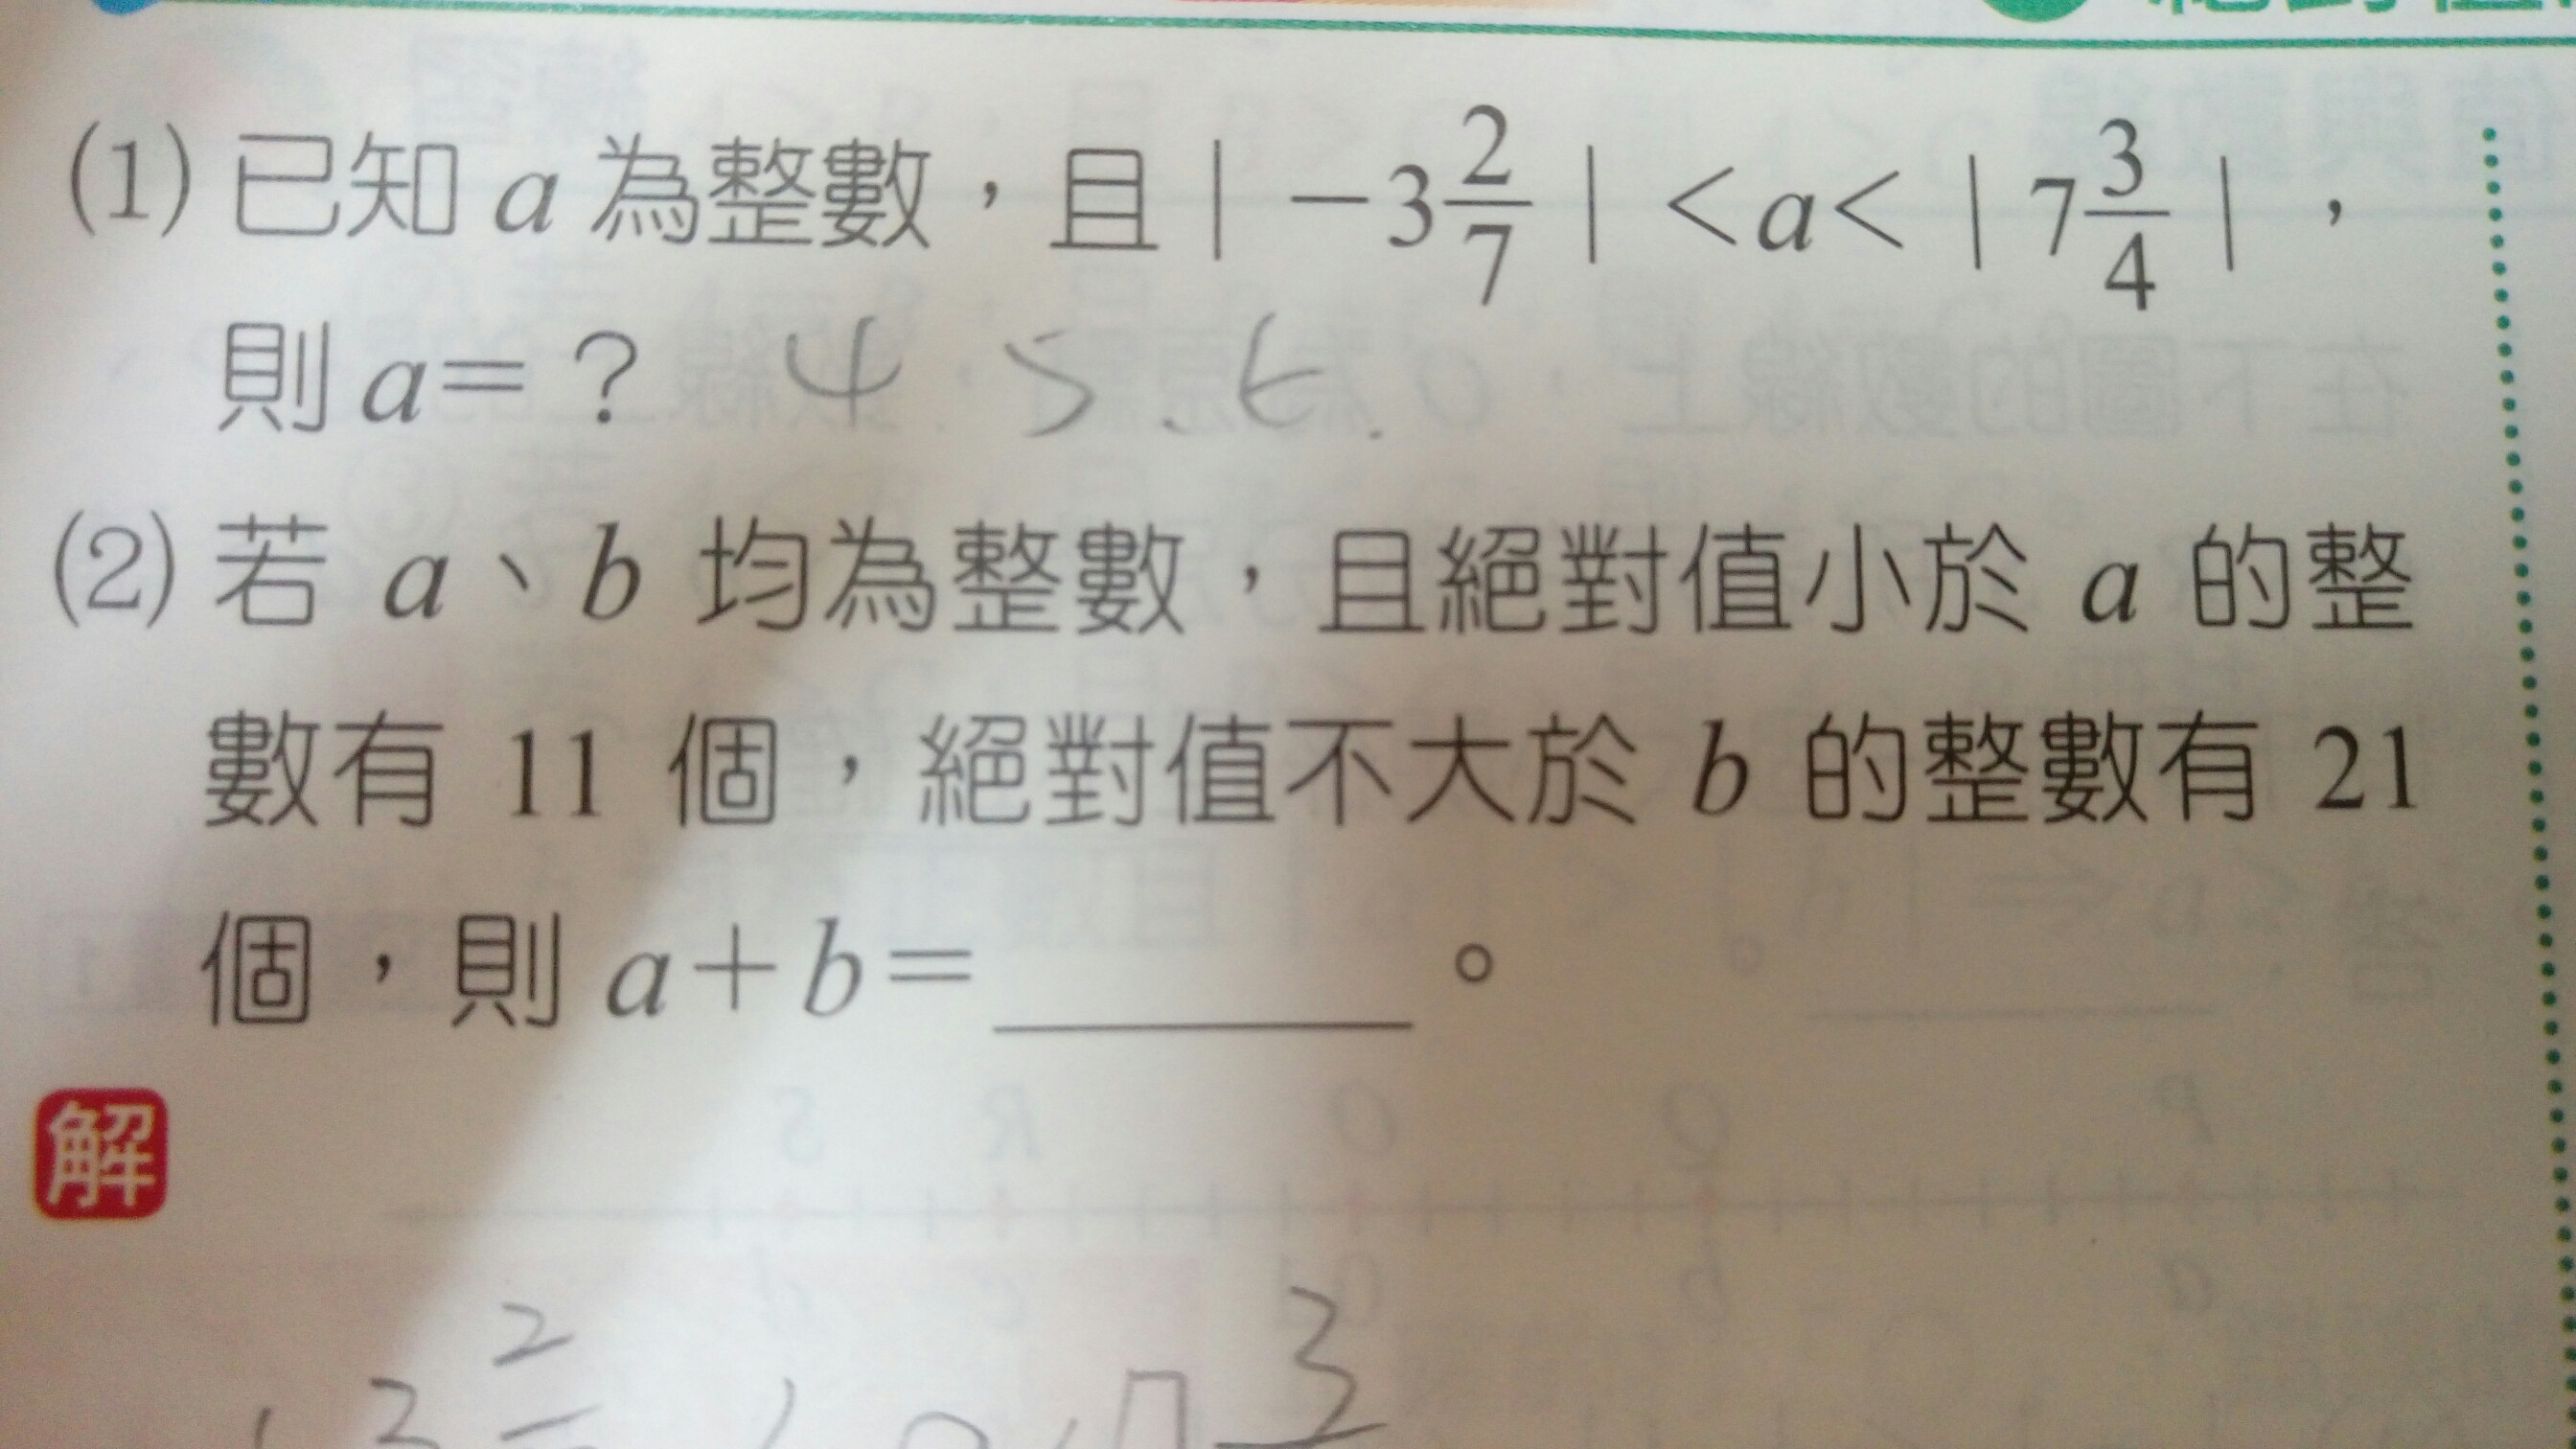 (1) 已知 a 為整數，且|－3 2/7|＜a＜|7 3/4|，
則 a＝？ 4 5 . 6 .
(2) 若 a、b 均為整數，且絕對值小於 a 的整
數有 11 個，絕對值不大於 b 的整數有 21
個，則 a＋b＝______。
解